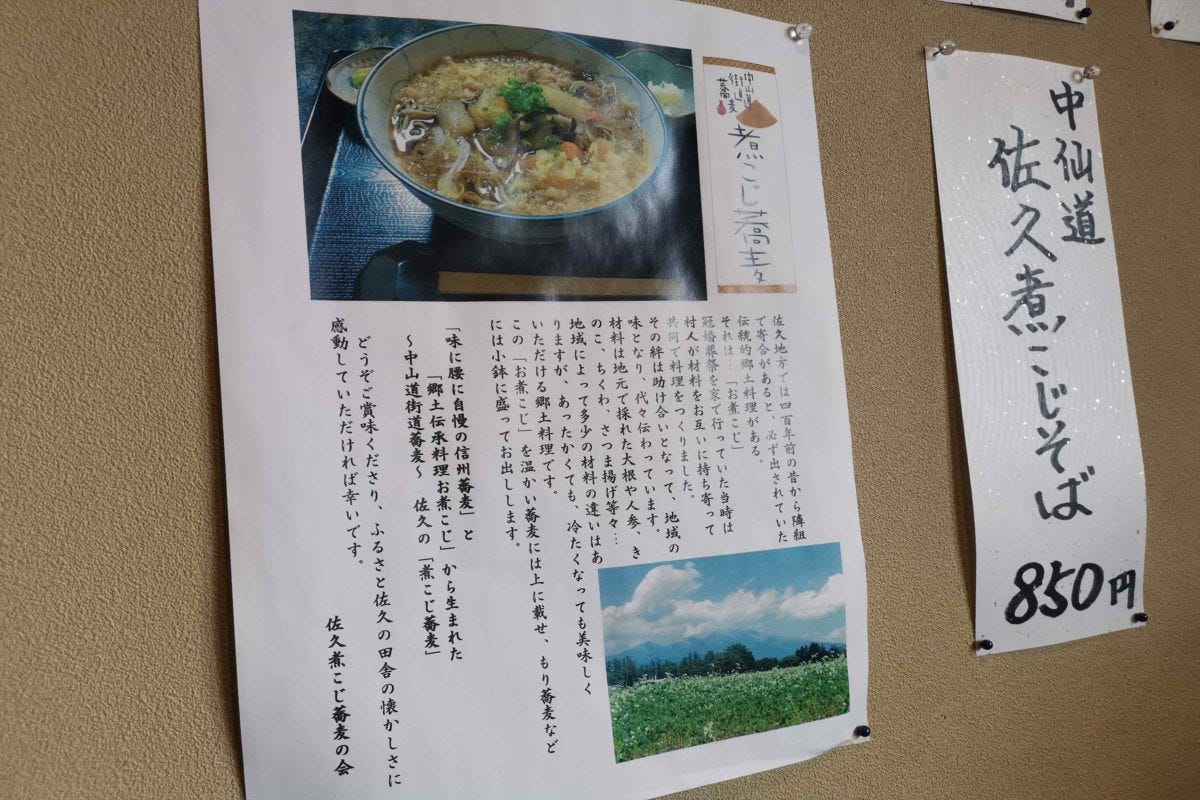 中山道
街道
蕎麦
煮こじ蕎麦
佐久地方では四百年前の昔から隣組
で寄合があると、必ず出されていた
伝統的郷土料理がある。
それは…「お煮こじ」
冠婚葬祭を家で行っていた当時は
村人が材料をお互いに持ち寄って
共同で料理をつくりました。
その絆は助け合いとなって、地域の
味となり、代々伝わっています。
材料は地元で採れた大根や人参、き
のこ、ちくわ、さつま揚げ等々…
地域によって多少の材料の違いはあ
りますが、あったかくても、冷たくなっても美味しく
いただける郷土料理です。
この「お煮こじ」を温かい蕎麦には上に載せ、もり蕎麦など
には小鉢に盛ってお出しします。
「味に腰に自慢の信州蕎麦」と
「郷土伝承料理お煮こじ」から生まれた
〜中山道街道蕎麦〜 佐久の「煮こじ蕎麦」
どうぞご賞味くださり、ふるさと佐久の田舎の懐かしさに
感動していただければ幸いです。
佐久煮こじ蕎麦の会
中仙道
佐久煮こじそば
850円